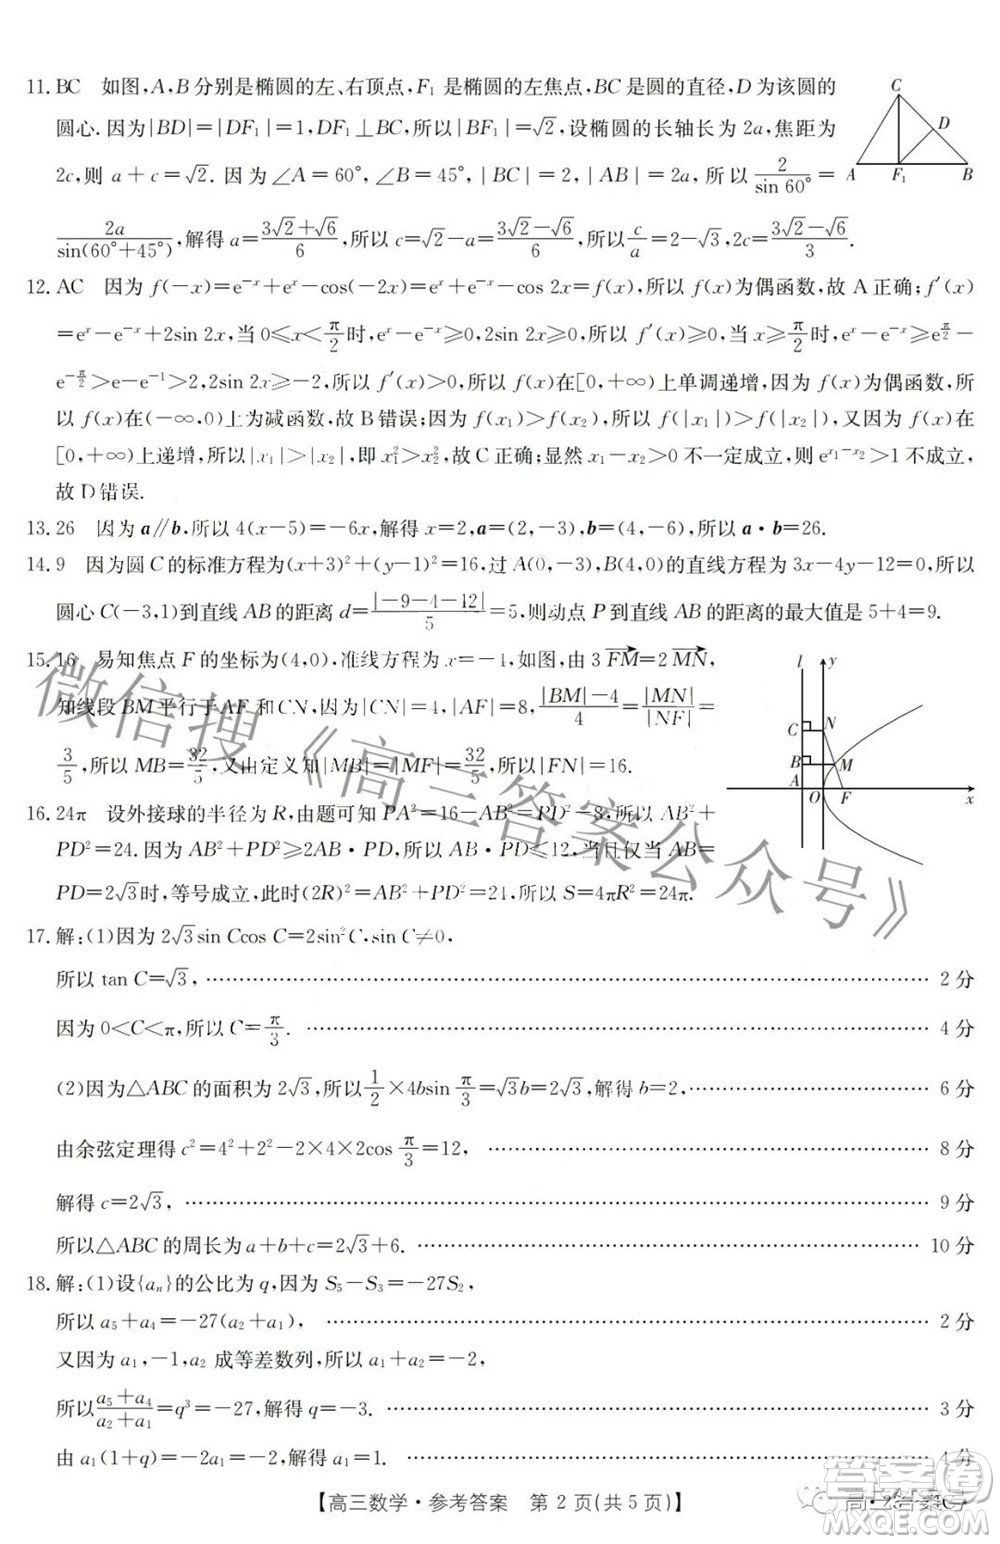 11. BC 如图,A,B分别是椭圆的左、右顶点,F₁是椭圆的左焦点,BC是圆的直径,D为该圆的
圆心.因为|BD|=|DF₁|=1,DF₁⊥BC,所以|BF₁|=√2,设椭圆的长轴长为2a,焦距为
2c,则a+c=√2. 因为∠A=60°,∠B=45°,|BC|=2,|AB|=2a,所以2/sin 60°=
2a/sin(60°+45°),解得a=(3√2+√6)/6,所以c=√2-a=(3√2-√6)/6,所以c/a=2-√3,2c=(3√2-√6)/3.
C
D
A F₁ B
12. AC 因为f(-x)=e⁻ˣ+eˣ-cos(-2x)=eˣ+e⁻ˣ-cos 2x=f(x),所以f(x)为偶函数,故A正确;f′(x)
=eˣ-e⁻ˣ+2sin 2x,当0≤x<π/2时,eˣ-e⁻ˣ≥0,2sin 2x≥0,所以f′(x)≥0,当x≥π/2时,eˣ-e⁻ˣ≥e^(π/2)-
e^(-π/2)>e-e⁻¹>2,2sin 2x≥-2,所以f′(x)>0,所以f(x)在[0,+∞)上单调递增,因为f(x)为偶函数,所
以f(x)在(-∞,0)上为减函数,故B错误;因为f(x₁)>f(x₂),所以f(|x₁|)>f(|x₂|),又因为f(x)在
[0,+∞)上递增,所以|x₁|>|x₂|,即x₁²>x₂²,故C正确;显然x₁-x₂>0不一定成立,则e^(x₁-x₂)>1不成立,
故D错误.
13. 26 因为a∥b,所以4(x-5)=-6x,解得x=2,a=(2,-3),b=(4,-6),所以a·b=26.
14. 9 因为圆C的标准方程为(x+3)²+(y-1)²=16,过A(0,-3),B(4,0)的直线方程为3x-4y-12=0,所以
圆心C(-3,1)到直线AB的距离d=|-9-4-12|/5=5,则动点P到直线AB的距离的最大值是5+4=9.
15. 16 易知焦点F的坐标为(4,0),准线方程为x=-4,如图,由3FM→=2MN→,
知线段BM平行于AF和CN,因为|CN|=4,|AF|=8,(|BM|-4)/4=|MN|/|NF|=
3/5,所以MB=32/5,又由定义知|MB|=|MF|=32/5,所以|FN|=16.
l y
C N
B M
A O F x
16. 24π 设外接球的半径为R,由题可知PA²=16-AB²=PD²-8,所以AB²+
PD²=24.因为AB²+PD²≥2AB·PD,所以AB·PD≤12,当且仅当AB=
PD=2√3时,等号成立,此时(2R)²=AB²+PD²=24,所以S=4πR²=24π.
17. 解:(1)因为2√3sin Ccos C=2sin²C,sin C≠0,
所以tan C=√3, …… 2分
因为0<C<π,所以C=π/3. …… 4分
(2)因为△ABC的面积为2√3,所以1/2×4bsin π/3=√3b=2√3,解得b=2, …… 6分
由余弦定理得c²=4²+2²-2×4×2cos π/3=12, …… 8分
解得c=2√3, …… 9分
所以△ABC的周长为a+b+c=2√3+6. …… 10分
18. 解:(1)设{aₙ}的公比为q,因为S₅-S₃=-27S₂,
所以a₅+a₄=-27(a₂+a₁), …… 2分
又因为a₁,-1,a₂成等差数列,所以a₁+a₂=-2,
所以(a₅+a₄)/(a₂+a₁)=q³=-27,解得q=-3. …… 3分
由a₁(1+q)=-2a₁=-2,解得a₁=1. …… 4分
【高三数学·参考答案 第2页(共5页)】
微信搜《高三答案公众号》
答案卷